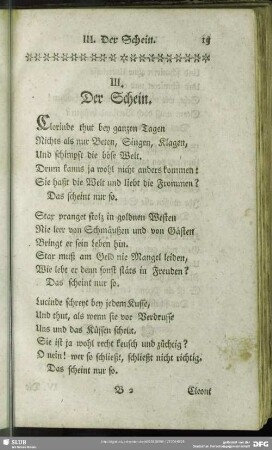 III. Der Schein. 19
III.
Der Schein.
Clorinde thut bey ganzen Tagen
Nichts als nur Beten, Singen, Klagen,
Und schimpft die böse Welt.
Drum kanns ja wohl nicht anders kommen!
Sie haßt die Welt und liebt die Frommen?
Das scheint nur so.
Star pranget stolz in goldnen Westen
Nie leer von Schmäußen und von Gästen
Bringt er sein Leben hin.
Star muß am Geld nie Mangel leiden,
Wie lebt er denn sonst stäts in Freuden?
Das scheint nur so.
Lucinde schreyt bey jedem Kusse,
Und thut, als wenn sie vor Verdrusse
Uns und das Küssen scheut.
Sie ist ja wohl recht keusch und züchtig?
O nein! wer so schließt, schließt nicht richtig.
Das scheint nur so.
B 2 Cleont
SLUB
DFG